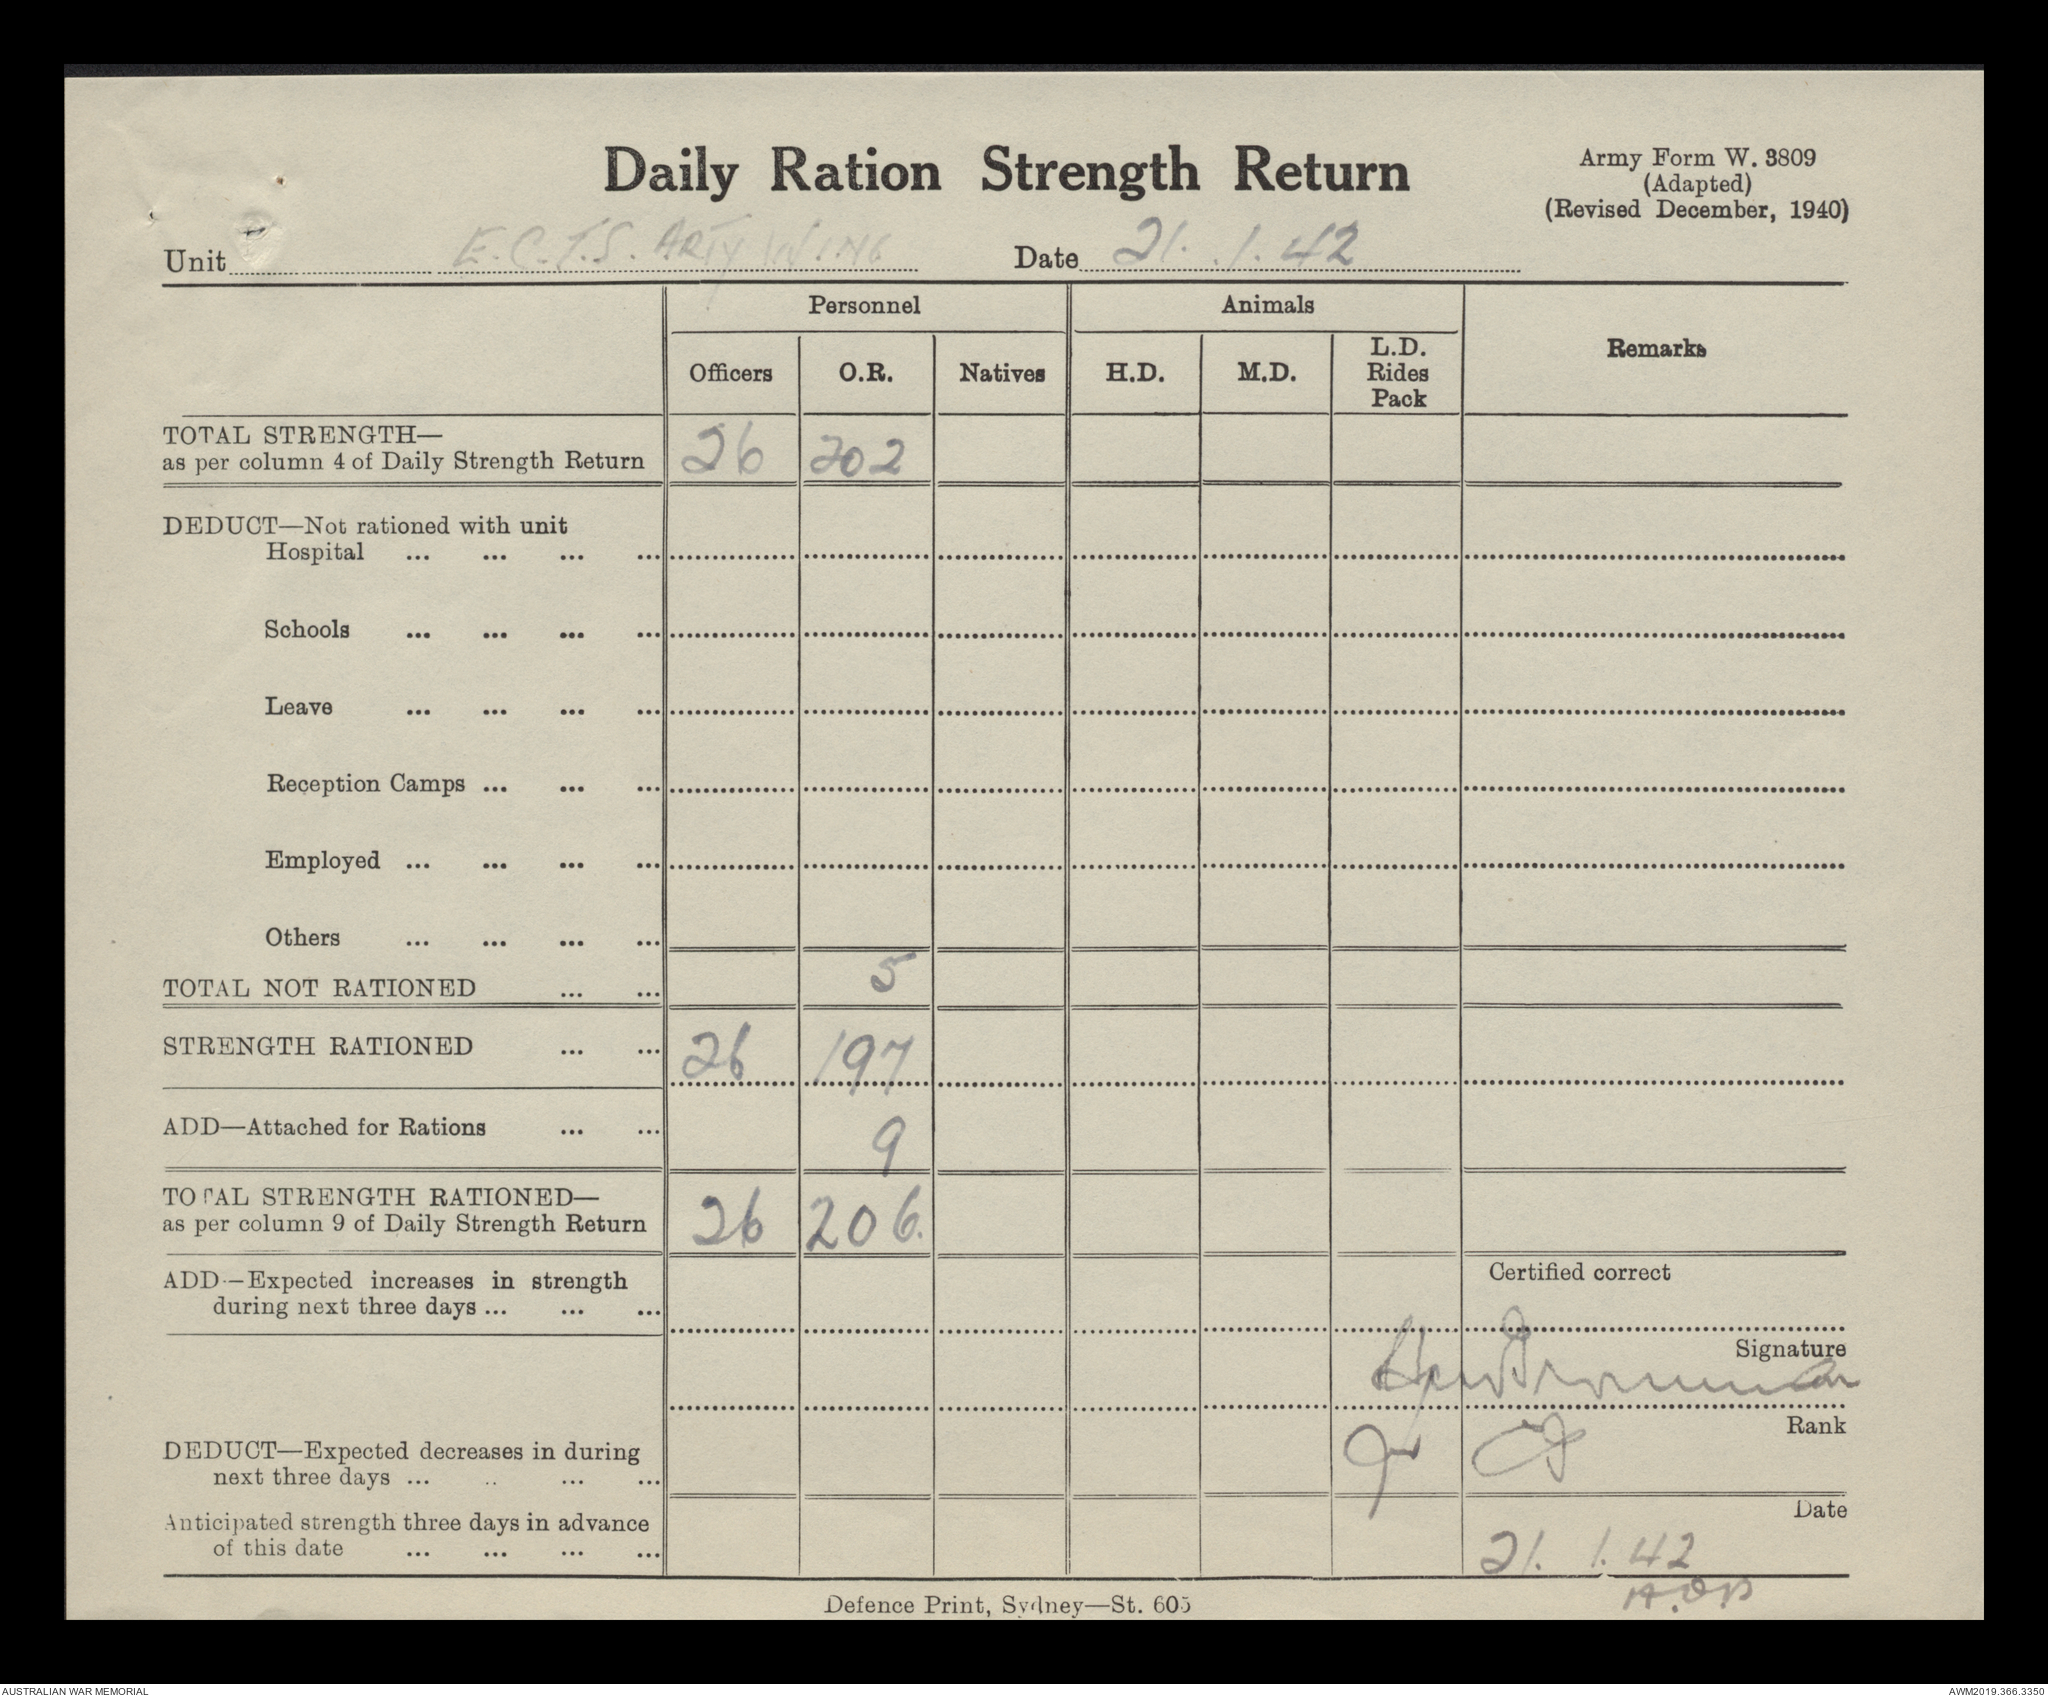 Daily Ration Strength Return
Army Form W. 3809
(Adapted)
(Revised December, 1940)
Unit E.C.T.S. ARTY WING Date 21. .1.42
Personnel Animals Remarks
Officers O.R. Natives H.D. M.D. L.D. Rides Pack
TOTAL STRENGTH—
as per column 4 of Daily Strength Return 26 202
DEDUCT—Not rationed with unit
Hospital ... ... ... ...
Schools ... ... ... ...
Leave ... ... ... ...
Reception Camps ... ... ...
Employed ... ... ... ...
Others ... ... ... ...
TOTAL NOT RATIONED ... ... 5
STRENGTH RATIONED ... ... 26 197
ADD—Attached for Rations ... ... 9
TOTAL STRENGTH RATIONED—
as per column 9 of Daily Strength Return 26 206.
ADD—Expected increases in strength
during next three days ... ... ...
Certified correct
Signature
Rank
DEDUCT—Expected decreases in during
next three days ... .. ... ...
Date
Anticipated strength three days in advance
of this date ... ... ... ...
21. 1.42
Defence Print, Sydney—St. 605
AUSTRALIAN WAR MEMORIAL AWM2019.366.3350